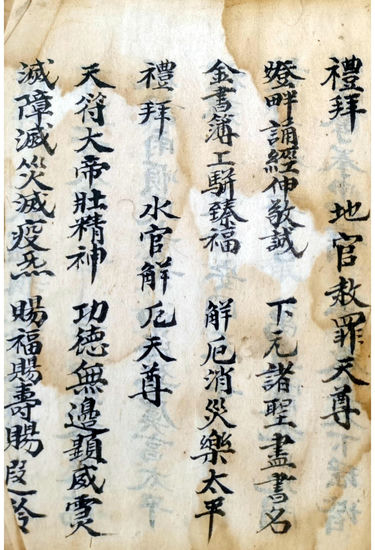 禮拜 地官赦罪天尊
燈畔誦經伸敬誠 下元諸聖盡書名
金書簿上騈臻福 解厄消災樂太平
禮拜 水官解厄天尊
天符大帝壯精神 功德無邊顕威灵
滅障滅災滅疫炁 賜福賜壽賜叚冷